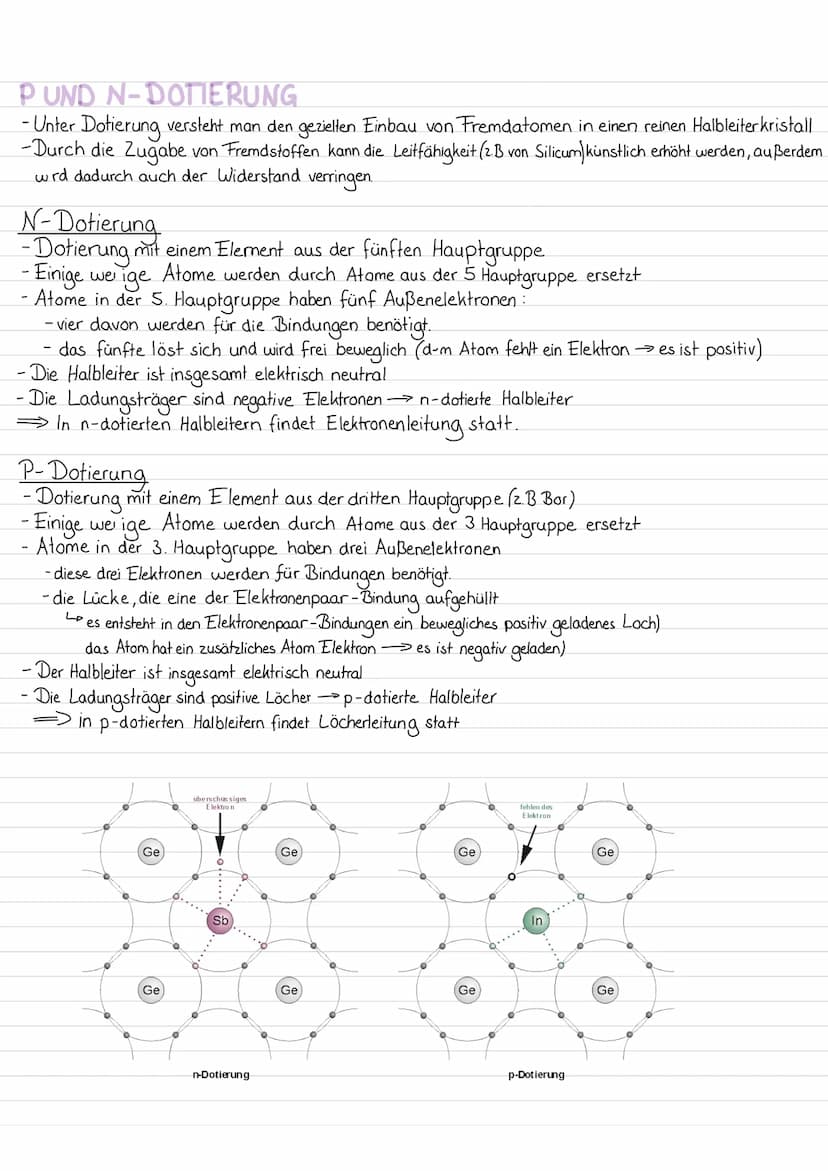 P UND N-DOTIERUNG
- Unter Dotierung versteht man den gezielten Einbau von Fremdatomen in einen reinen Halbleiterkristall
- Durch die Zugabe von Fremdstoffen kann die Leitfähigkeit (z B von Silicum) künstlich erhöht werden, außerdem
w rd dadurch auch der Widerstand verringen
N-Dotierung
- Dotierung mit einem Element aus der fünften Hauptgruppe
- Einige we ige Atome werden durch Atome aus der 5 Hauptgruppe ersetzt
- Atome in der 5. Hauptgruppe haben fünf Außenelektronen :
- vier davon werden für die Bindungen benötigt.
- das fünfte löst sich und wird frei beweglich (d-m Atom fehlt ein Elektron → es ist positiv)
- Die Halbleiter ist insgesamt elektrisch neutral
- Die Ladungsträger sind negative Elektronen → n-dotierte Halbleiter
⇒ In n-dotierten Halbleitern findet Elektronenleitung statt.
P-Dotierung
- Dotierung mit einem Element aus der dritten Hauptgruppe (z B Bor)
- Einige we ige Atome werden durch Atome aus der 3 Hauptgruppe ersetzt
- Atome in der 3. Hauptgruppe haben drei Außenelektronen
- diese drei Elektronen werden für Bindungen benötigt.
- die Lücke, die eine der Elektronenpaar-Bindung aufgehüllt
↳ es entsteht in den Elektronenpaar-Bindungen ein bewegliches positiv geladenes Loch)
das Atom hat ein zusätzliches Atom Elektron → es ist negativ geladen)
- Der Halbleiter ist insgesamt elektrisch neutral
- Die Ladungsträger sind positive Löcher → p-dotierte Halbleiter
⇒ in p-dotierten Halbleitern findet Löcherleitung statt
überschüssiges
Elektron
fehlendes
Elektron
Ge Ge Ge Ge
Sb In
Ge Ge Ge Ge
n-Dotierung p-Dotierung